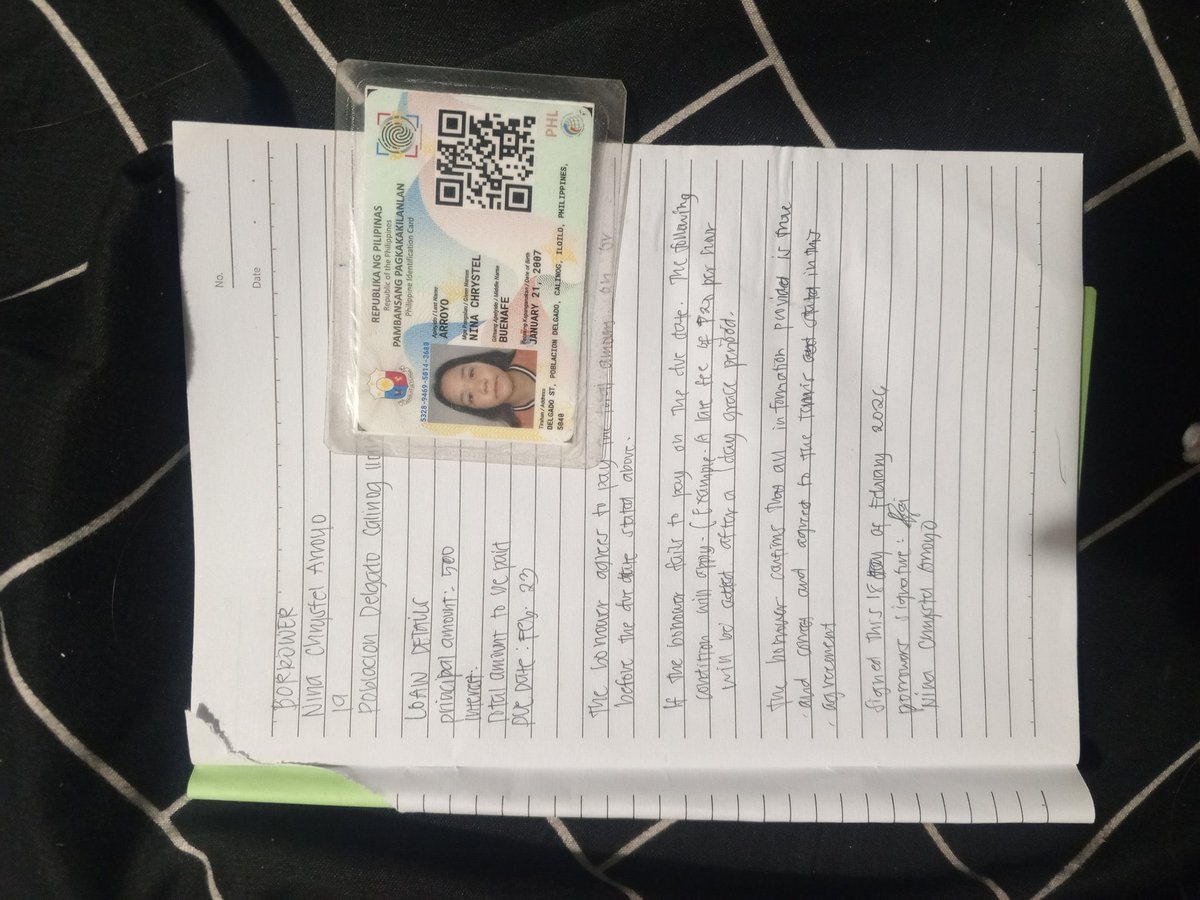 No.
Date
REPUBLIKA NG PILIPINAS
Republic of the Philippines
PAMBANSANG PAGKAKAKILANLAN
Philippine Identification Card
5328-9469-5014-3680
Apelyido/Last Name
ARROYO
Mga Pangalan/Given Names
NINA CHRYSTEL
Gitnang Apelyido/Middle Name
BUENAFE
Petsa ng Kapanganakan/Date of Birth
JANUARY 21, 2007
Tirahan/Address
DELGADO ST, POBLACION DELGADO, CALINOG, ILOILO, PHILIPPINES,
5040
PHL
BORROWER
Nina Chrystel Arroyo
19
Poblacion Delgado Calinog
LOAN DETAILS
principal amount: 500
Interest:
Total amount to be paid
Due Date: Feb. 23
The borrower agrees to pay the total amount on or
before the due date stated above.
If the borrower fails to pay on the due date. The following
condition will apply - (Example: A late fee of per hour
will be added after a 1 day grace period.
The borrower confirms that all information provided is true
and correct and agreed to the terms stated in this
agreement
Signed this 18 day of February 2026
borrowers signature:
Nina Chrystel Arroyo